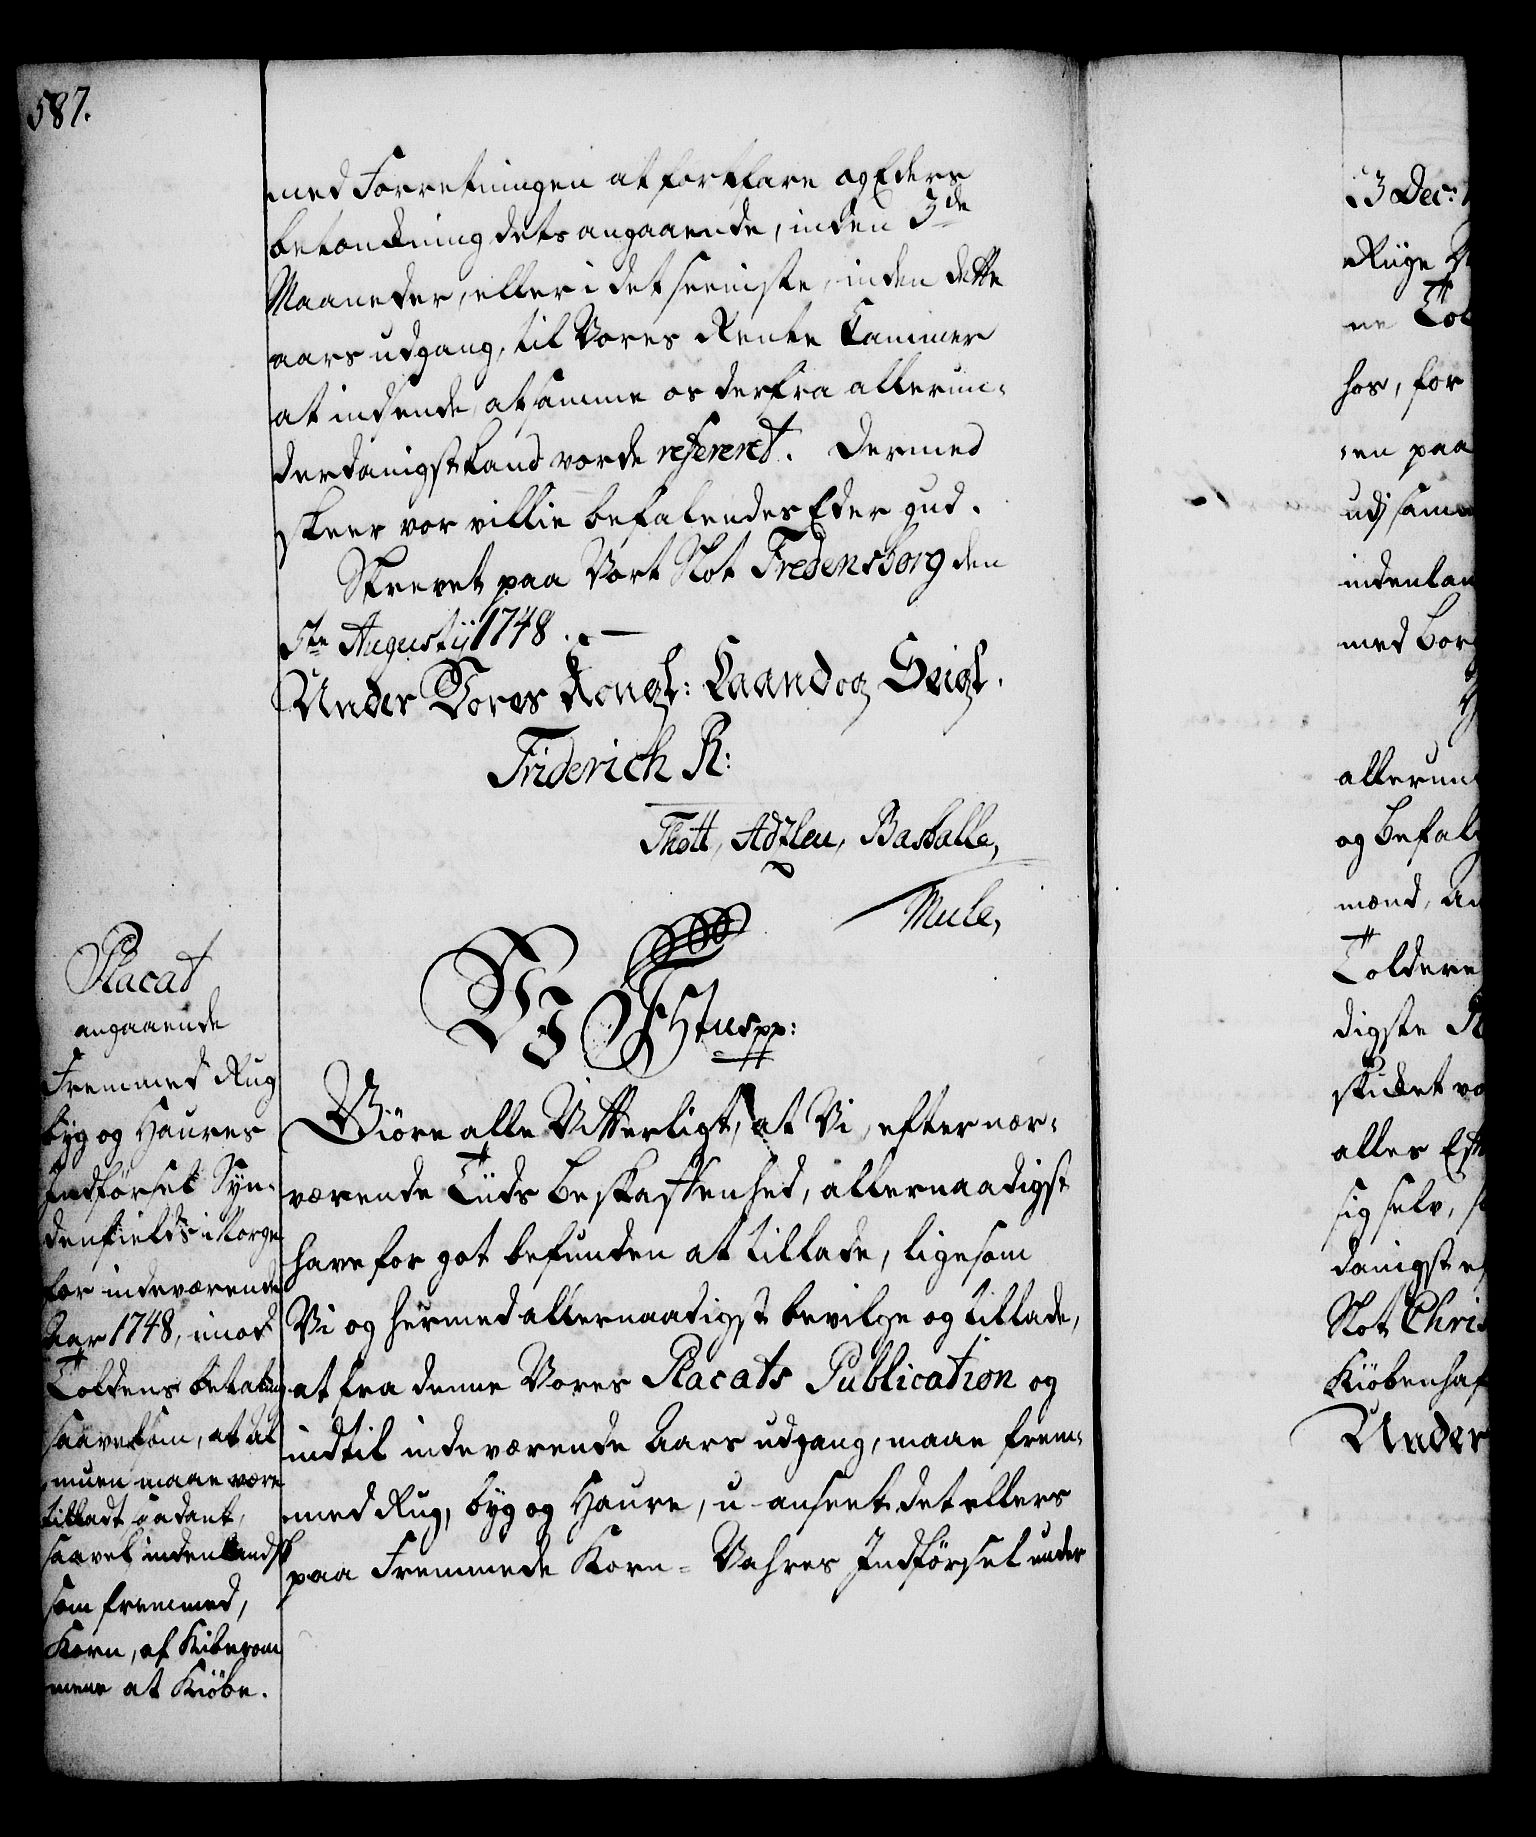 587.
med Forretningen at fortfare og Eders
betænckning dets angaaende, inden 3de
Maaneder, eller i det seeniste, inden dette
aars udgang, til Vores Rente Cammer
at indsende, at samme os derfra allerun-
derdanigst kand vorde refereret. Dermed
skeer vor villie befalendes Eder gud.
Skrevet paa Vort Slot Fredensborg den
5te Augustij 1748.
Under Vores Kongl: Haand og Seigl.
Friderich R:
Thott, Adzleu, Basballe,
Mule,
Placat
angaaende
Fremmed Rug
byg og Haures
Indførsel Syn-
denfields i Norge
for indeværende
Aar 1748, imod
Toldens betaling
saavelsom, at al
muen maae være
tilladt saadant,
saavel indenlandsk
som fremmed,
Korn, af Kiberom
mene at Kiøbe.
VJ FStus pp:
Giøre alle Vitterligt, at Vi, efter nær-
værende Tiids beskaffenhed, allernaadigst
have for got befunden at tillade, ligesom
Vi og hermed allernaadigst bevilge og tillade,
at fra denne Vores Placats Publication og
indtil indeværende Aars udgang, maae frem-
med Rug, byg og Haure, u-anseet det ellers
paa Fremmede Korn-Vahres Indførsel under
13 Dec:
Riige
ne Tol
hos, for
en paa
udj samme
indenlan
med bor
allerun
og befal
mænd, Am
Toldere
digste
skicket
alles Eft
sig selv,
danigst ef
Slot Chris
Kiøbenhaf
Under